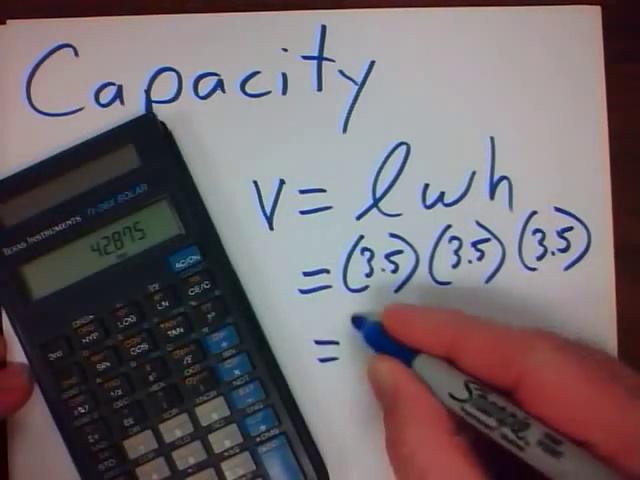 Capacity
V = l w h
= (3.5) (3.5) (3.5)
=
TEXAS INSTRUMENTS TI-36X SOLAR
42.875
AC/ON
CE/C
LOG
LN
HYP
SIN
COS
TAN
2nd
STO
Sharpie